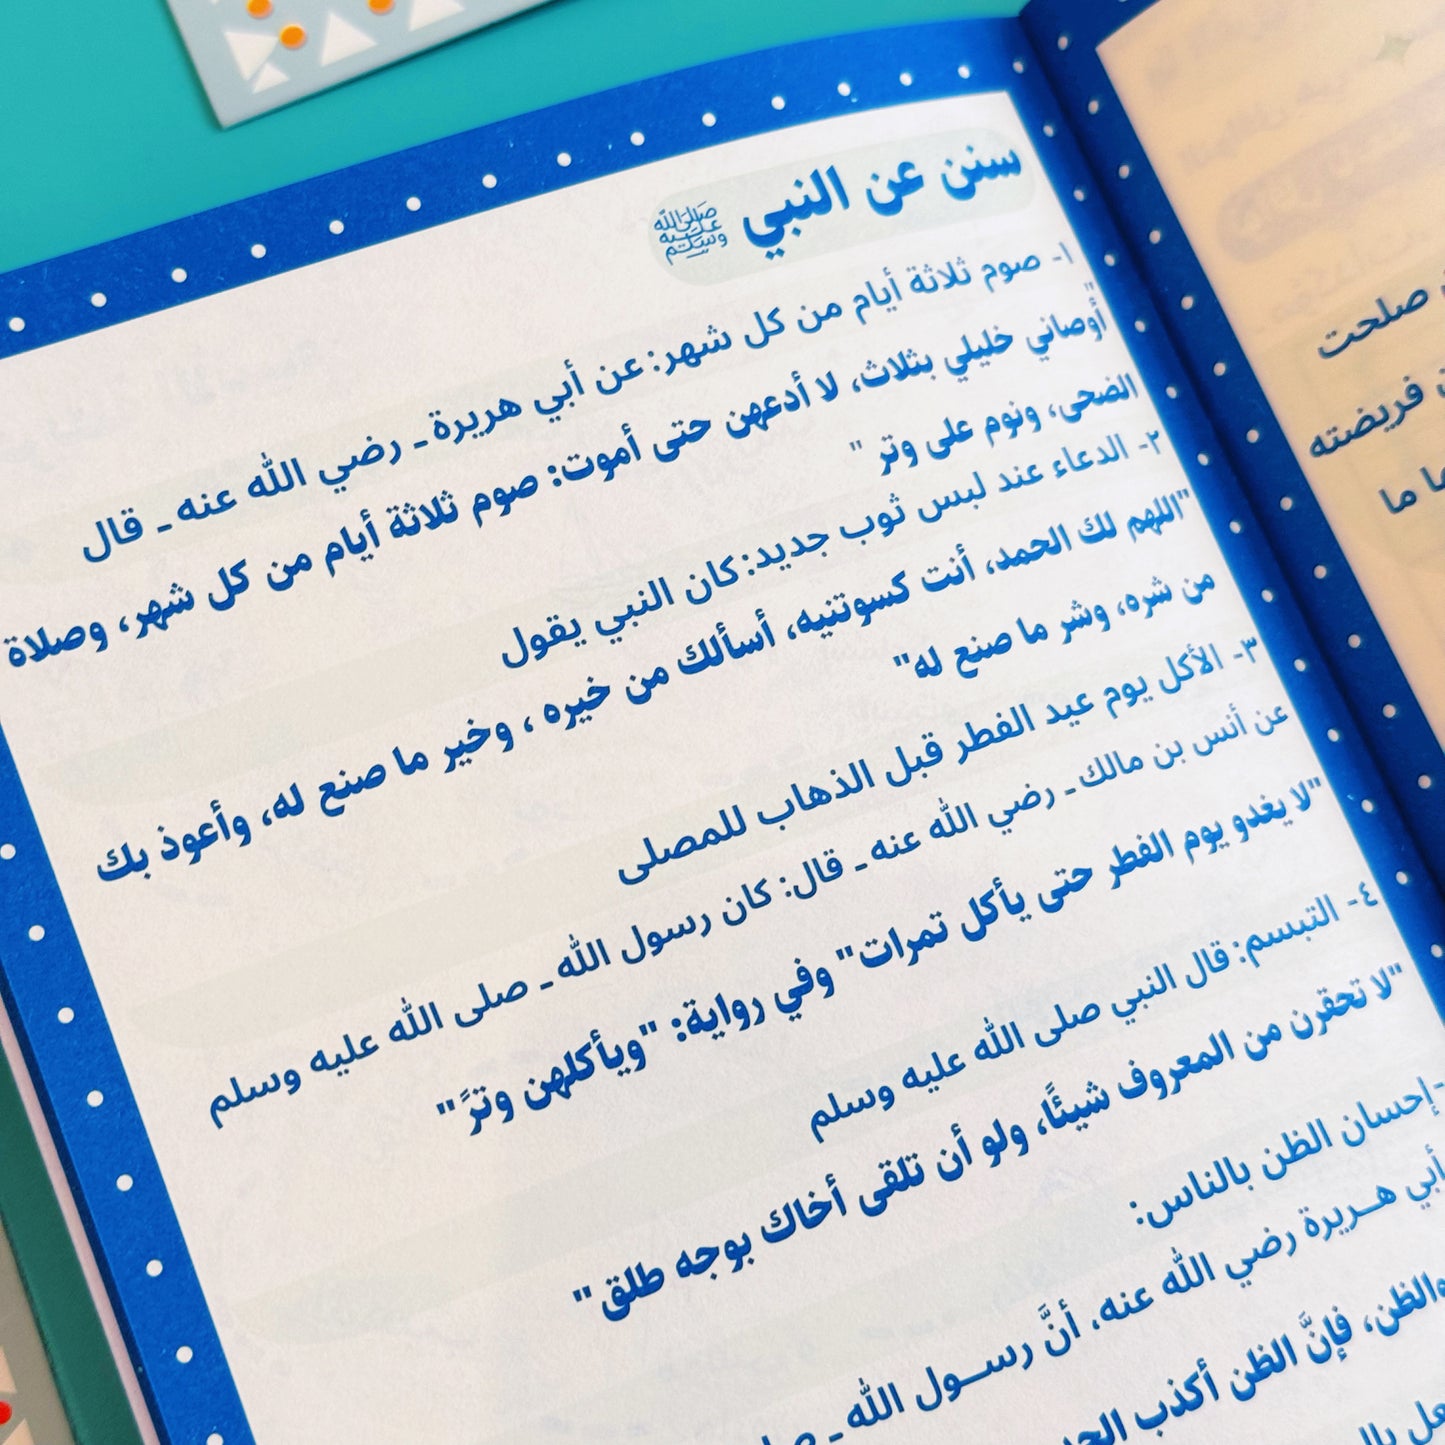 سنن عن النبي ﷺ
١- صوم ثلاثة أيام من كل شهر: عن أبي هريرة ـ رضي الله عنه ـ قال
"أوصاني خليلي بثلاث، لا أدعهن حتى أموت: صوم ثلاثة أيام من كل شهر، وصلاة
الضحى، ونوم على وتر "
٢- الدعاء عند لبس ثوب جديد: كان النبي يقول
"اللهم لك الحمد، أنت كسوتنيه، أسألك من خيره ، وخير ما صنع له، وأعوذ بك
من شره، وشر ما صنع له"
٣- الأكل يوم عيد الفطر قبل الذهاب للمصلى
عن أنس بن مالك ـ رضي الله عنه ـ قال: كان رسول الله ـ صلى الله عليه وسلم
"لا يغدو يوم الفطر حتى يأكل تمرات" وفي رواية: "ويأكلهن وترً "
٤- التبسم: قال النبي صلى الله عليه وسلم
"لا تحقرن من المعروف شيئًا، ولو أن تلقى أخاك بوجه طلق "
-إحسان الظن بالناس:
أبي هريرة رضي الله عنه، أنَّ رسول الله ـ
والظن، فإنَّ الظن أكذب
صلحت
فريضته
ما